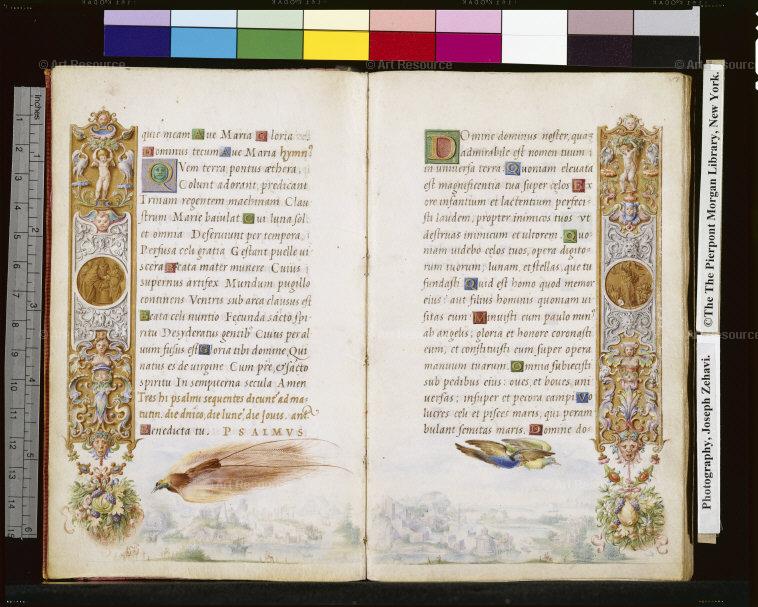 quie meam Aue Maria Gloria
Dominus tecum Aue Maria hymnꝰ
QVem terra, pontus æthera,
Colunt adorant, predicant
Trinam regentem machinam Clau
strum Marie baiulat Cui luna, sol,
et omnia Deseruiunt per tempora
Perfusa celi gratia Gestant puelle ui
scera Beata mater munere Cuius
supernus artifex Mundum pugillo
continens Ventris sub arca clausus est
Beata celi nuncio Fecunda sācto spi-
ritu Desyderatus gentibꝰ Cuius per al
uum fusus est Gloria tibi domine, Qui
natus es de uirgine Cum pr̄e, et sācto
spiritu In sempiterna secula Amen
Tres hi psalmi sequentes dicunt̄ ad ma-
tutin. die dn̄ico, die lune, die Jouis. anā
Benedicta tu. PSALMVS
DOmine dominus noster, quā
admirabile est nomen tuum
in uniuersa terra Quoniam eleuata
est magnificentia tua super celos Ex
ore infantium et lactentium perfeci-
sti laudem, propter inimicos tuos vt
destruas inimicum et ultorem Quo-
niam uidebo celos tuos, opera digito-
rum tuorum; lunam, et stellas, que tu
fundasti Quid est homo quod memor
es eius? aut filius hominis quoniam ui
sitas eum Minuisti eum paulo minꝰ
ab angelis; gloria et honore coronasti
eum, et constituisti eum super opera
manuum tuarum Omnia subiecisti
sub pedibus eius: oues, et boues, uni
uersas; insuper et pecora campi Vo
lucres celi et pisces maris, qui peram
bulant semitas maris. Domine do-
©The The Pierpont Morgan Library, New York.
Photography, Joseph Zehavi.
Inches
© Art Resource
© Art Resource
© Art Resource